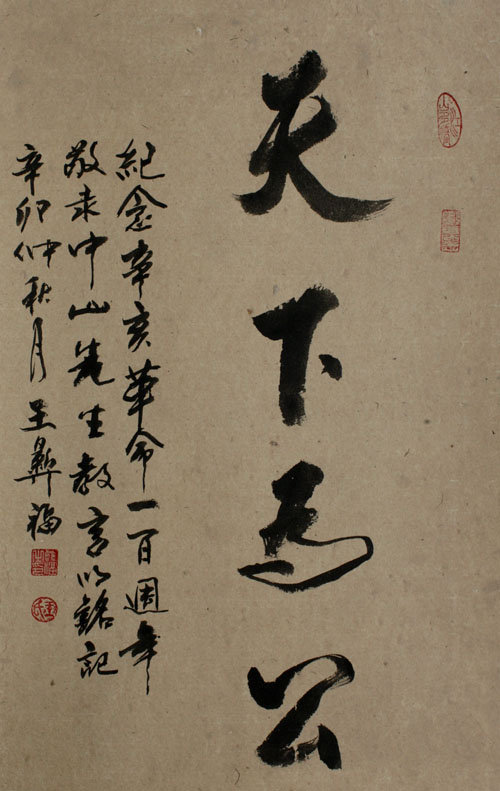 天下为公
紀念辛亥革命一百週年
敬录中山先生教言以銘記
辛卯仲秋月 王彝福